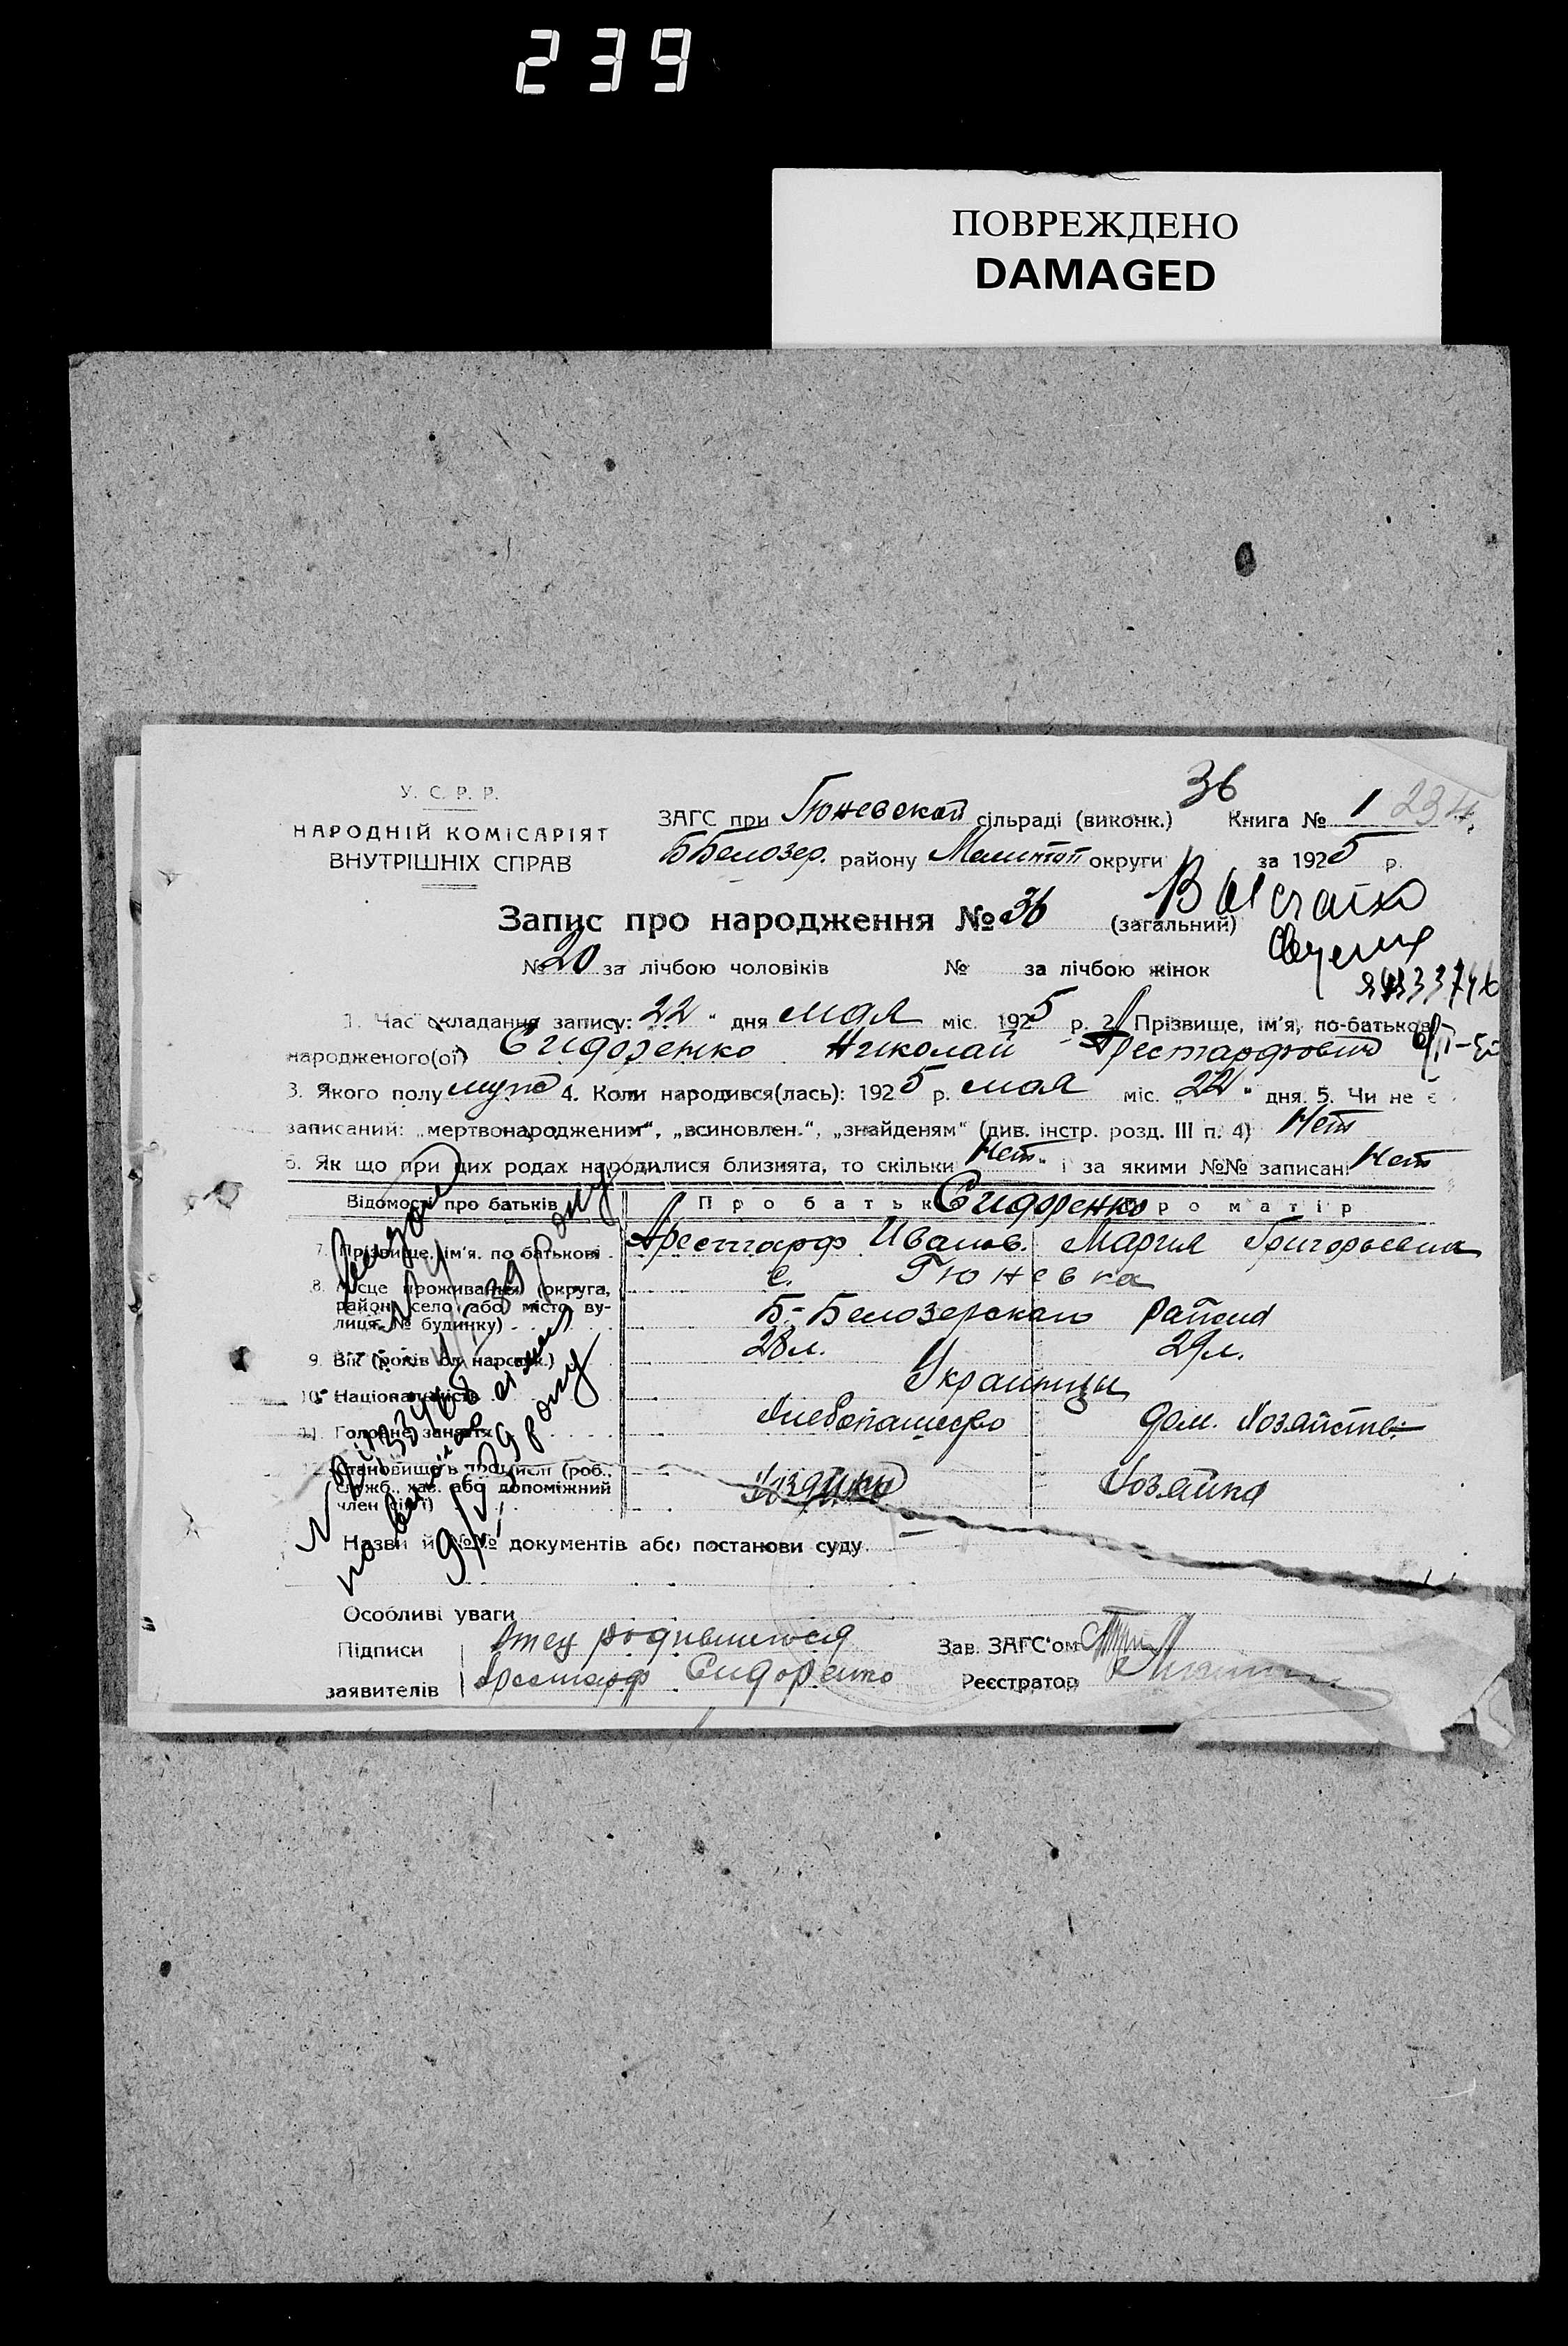 239
ПОВРЕЖДЕНО
DAMAGED
У. С. Р. Р.
НАРОДНІЙ КОМІСАРІЯТ
ВНУТРІШНІХ СПРАВ
36
ЗАГС при Гюневской сільраді (виконк.) Книга № 1 234
ББелозер. району Мелитоп округи за 1925 р.
Запис про народження № 36 (загальний)
№ 20 за лічбою чоловіків № за лічбою жінок
1. Час складання запису: 22 " дня мая міс. 1925 р. 2. Прізвище, ім'я, по-батькові
народженого(ої) Сидоренко Николай Арестарфович
3. Якого полу муж 4. Коли народився(лась): 1925 р. мая міс. „22" дня. 5. Чи не є
записаний: „мертвонародженим", „всиновлен.", „знайденям" (див. інстр. розд. III п. 4) Нет
6. Як що при цих родах народилися близнята, то скільки Нет і за якими №№ записані Нет
Відомості про батьків Про батька Сидоренко Про матір
7. Прізвище, ім'я, по батькові Арестарф Иванов. Мария Григорьевна
8. Місце проживання (округа, с. Гюневка
район, село або місто, ву-
лиця, № будинку) Б-Белозерского Района
9. Вік (років від народж.) 28 л. 29 л.
10. Національність Украинцы
11. Головне заняття Хлебопашество дом. Хозяйств.
12. Становище в промислі (роб.,
служб., хаз. або допоміжний Хозяин Хозяйка
член сім'ї)
Назви й №№ документів або постанови суду
Особливі уваги
Підписи Отец родившегося Зав. ЗАГС'ом
заявителів Арестарф Сидоренко Реєстратор